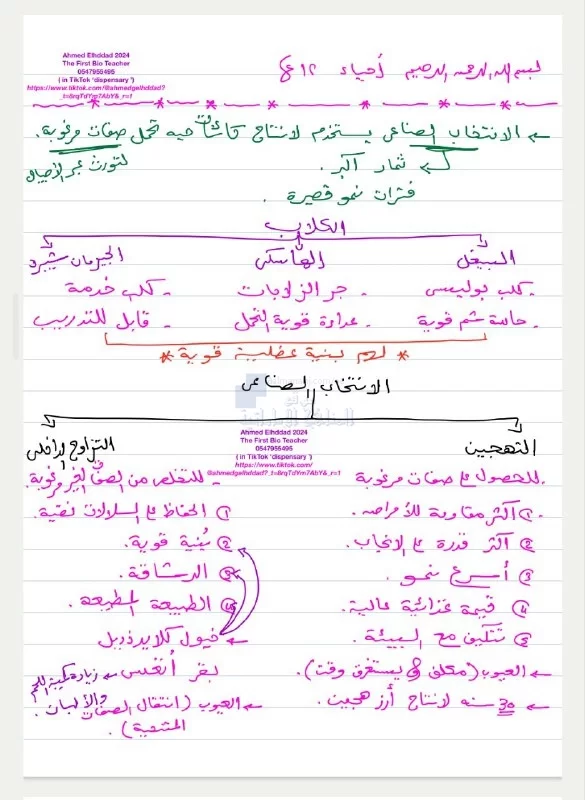 Ahmed Elhddad 2024
The First Bio Teacher
0547955495
( in TikTok "dispensary ")
https://www.tiktok.com/@ahmedgelhddad?
_t=8rqTdYrp7AbY&_r=1
بسم الله الرحمن الرحيم أحياء ١٢ ع
← الانتخاب الصناعي يستخدم لانتاج كائنات حيه تحمل صفات مرغوبة.
لتورث عبر الأجيال
ثمار اكبر.
فترات نمو قصيرة.
الكلاب
البيغل الهاسكي الجيرمان شيبرد
- كلب بوليسي - جر الزلاجات - كلب خدمة
- حاسة شم قوية - عدادة قوية التحمل - قابل للتدريب
* لهم بنية عضلية قوية *
الانتخاب الصناعي
Ahmed Elhddad 2024
The First Bio Teacher
0547955495
( in TikTok "dispensary ")
https://www.tiktok.com/
@ahmedgelhddad?_t=8rqTdYrn7AbY&_r=1
التهجين
للحصول على صفات مرغوبة
① أكثر مقاومة للأمراض.
② أكثر قدرة على الانجاب.
③ أسرع نمو.
④ قيمة غذائية عالية.
⑤ تتكيف مع البيئة.
← العيوب (مكلف و يستغرق وقت).
← 30 سنه لانتاج أرز هجين.
التزاوج الداخلي
- للتخلص من الصفات الغير مرغوبة.
① الحفاظ على السلالات نقية.
② بنية قوية.
③ الرشاقة.
④ الطبيعة المطيعة.
← خيول كلايدزديل
بقر أنغس ← زيادة كمية اللحم والألبان.
← العيوب (انتقال الصفات المتنحية).